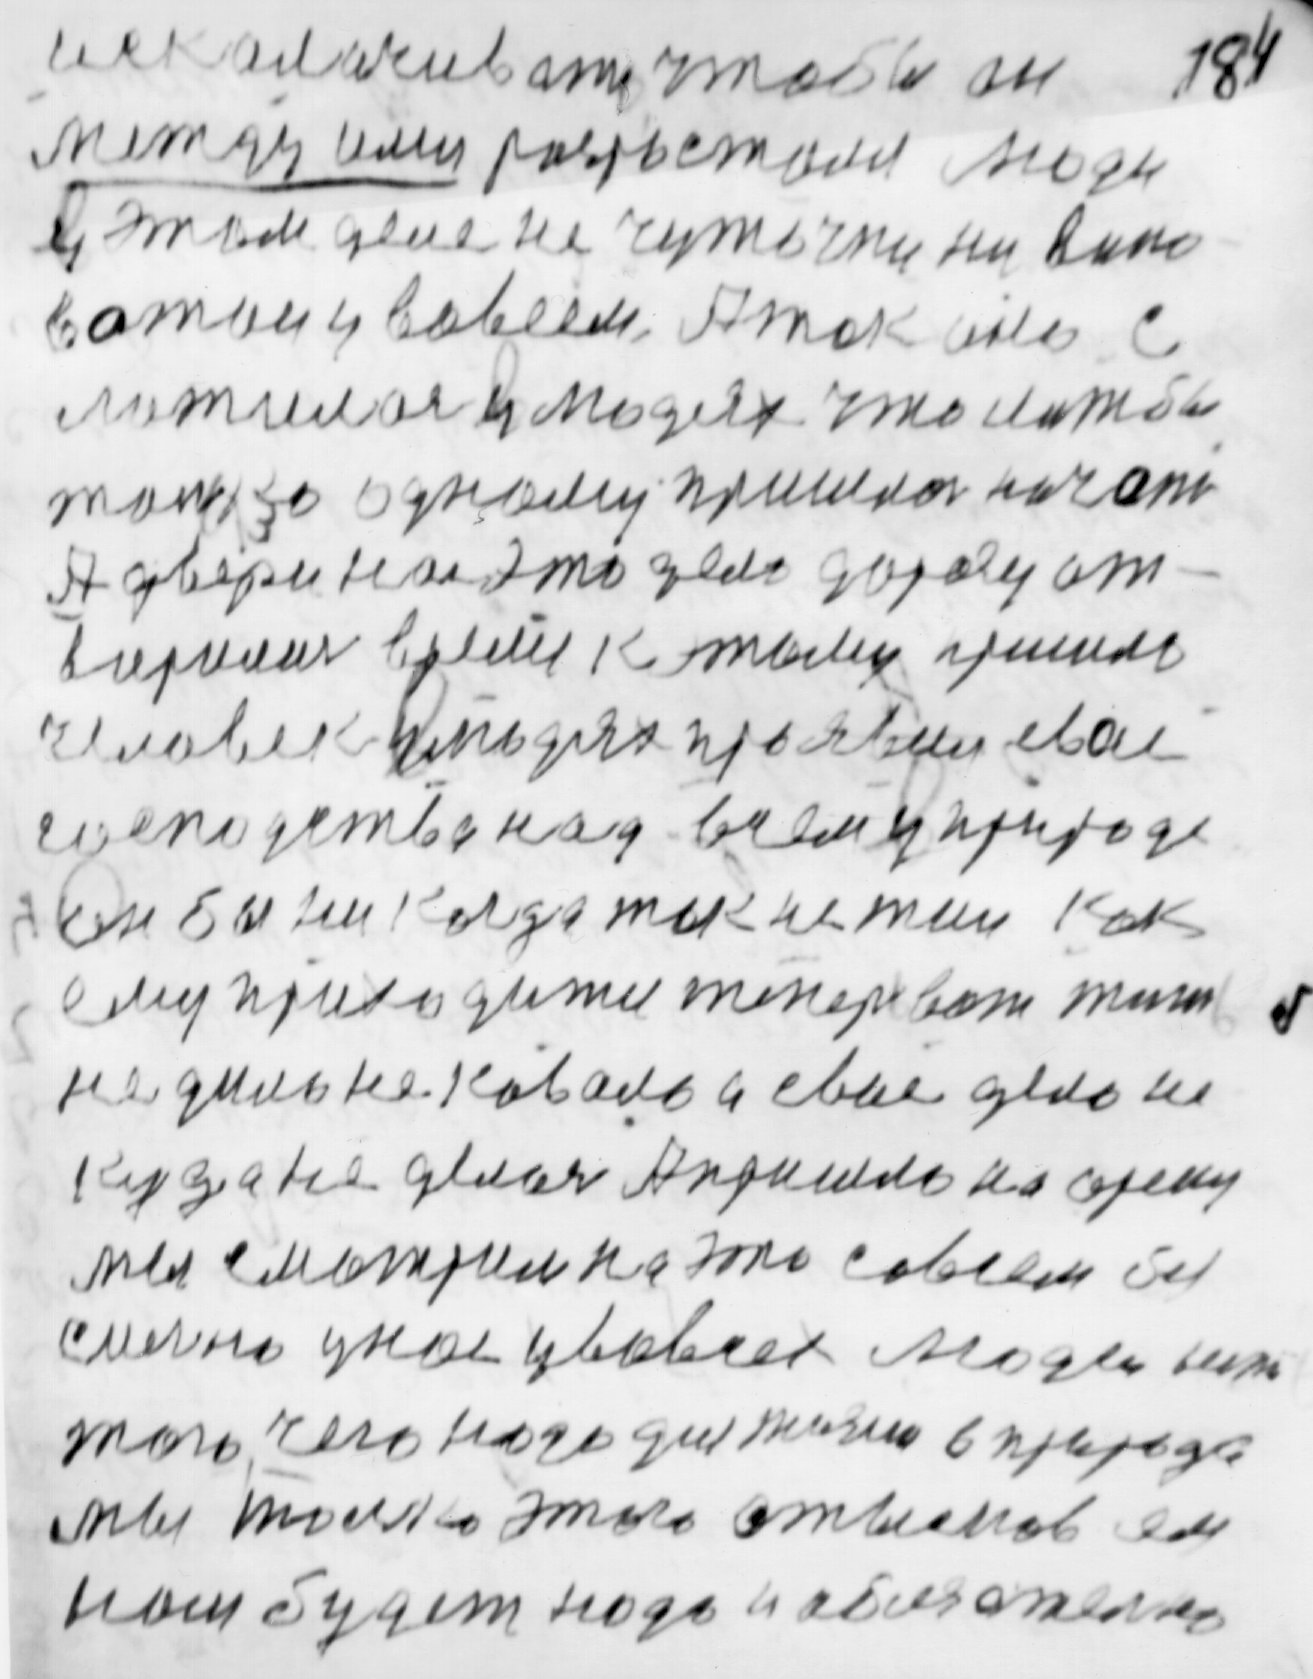 184
искалачивать чтобы он
метду ими разрьстали люди
у этом деле не чуточки ни вино
ватыи у вовсем. А так оно с
ложилася у людях что ита бы
только одному пришлося начать
А двери на это дело дорогу от-
варилися время к тому пришло
человек у людях проявил свое
госпотдства над всему природе
он бы никагда так не жил как
ему приходится теперь вот жить
не дило не ковало а свае дело не
кузда не делося А пришло на арену
мы смотрим на это совсем бы
смечно у нас у вовсех людей нет
того, чего надо для жизни в природе
мы только этого отвисков ем
нам будет надо и обязательно